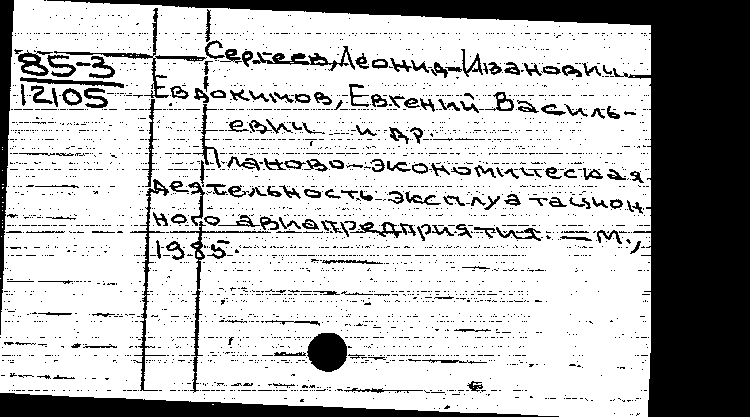 85-3
12105
Сергеев, Леонид Иванович.
Евдокимов, Евгений Василь-
евич и др.
Планово-экономическая
деятельность эксплуатацион-
ного авиапредприятия. — М.,
1985.